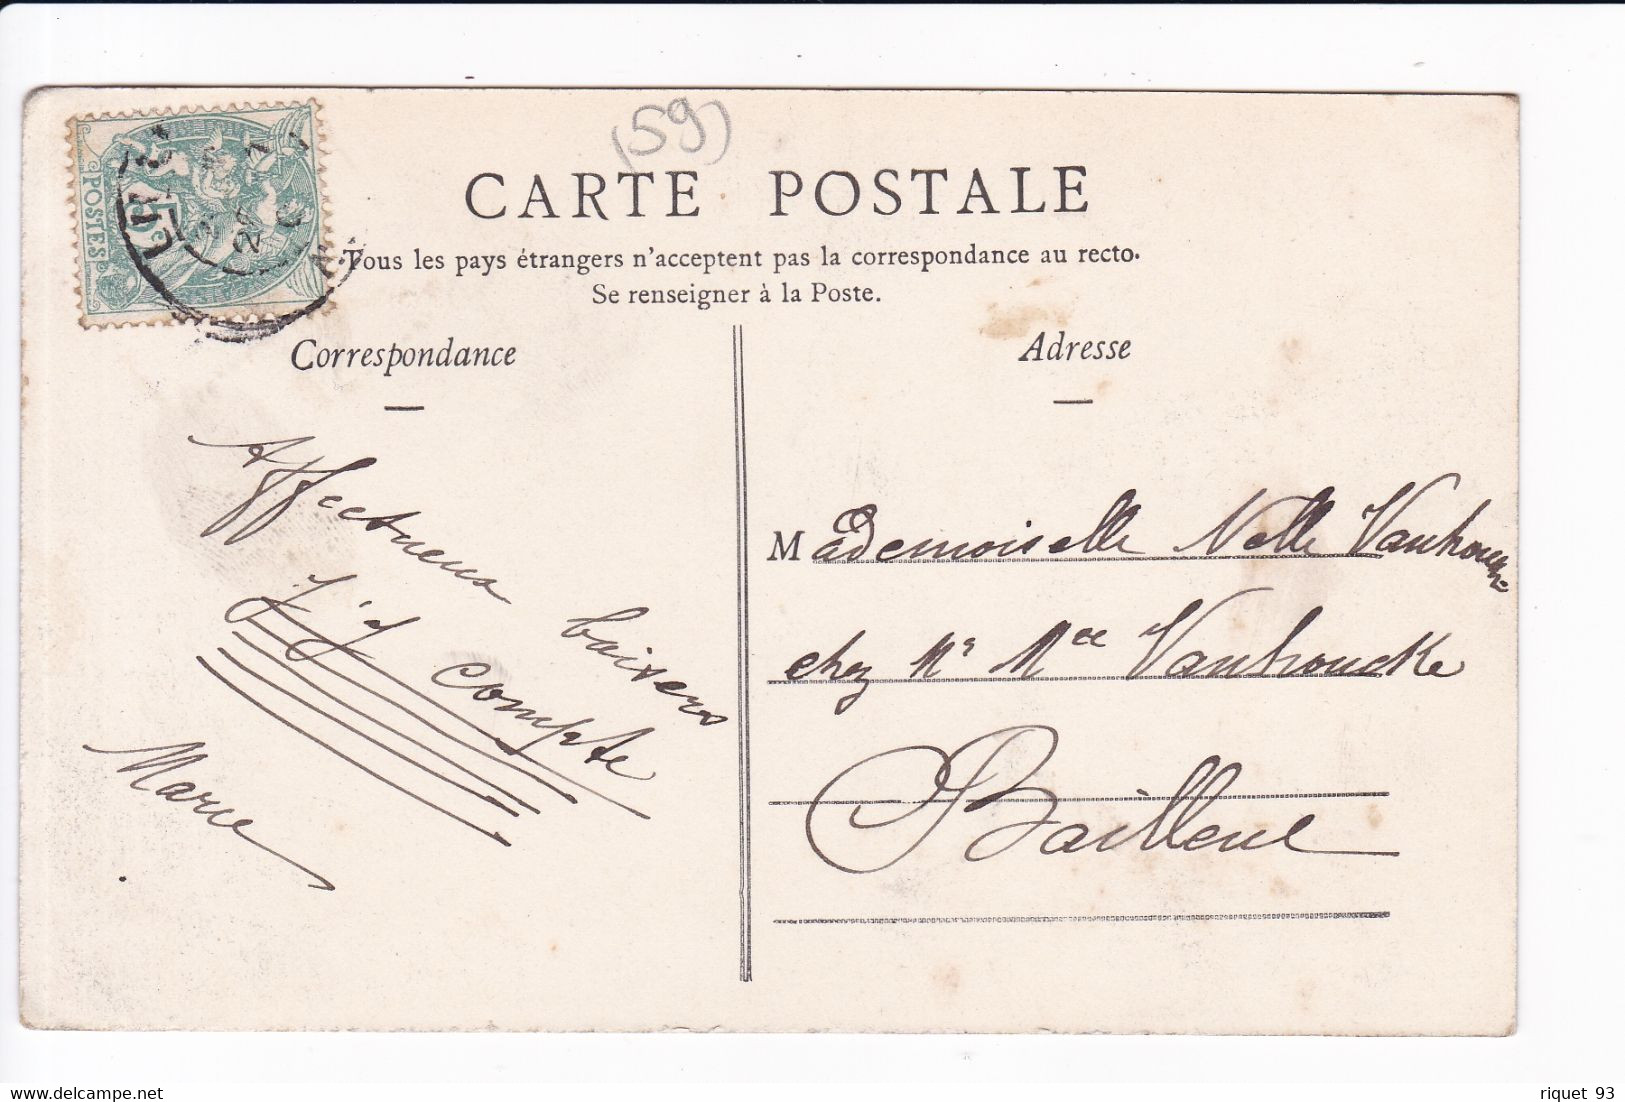 (59)
CARTE POSTALE
Tous les pays étrangers n'acceptent pas la correspondance au recto.
Se renseigner à la Poste.
POSTES
5c
Correspondance
Affectueux baisers
J'y compte
Marie
Adresse
Mademoiselle Nelle Vanhoucke
chez Mr Mce Vanhoucke
Bailleul
riquet 93